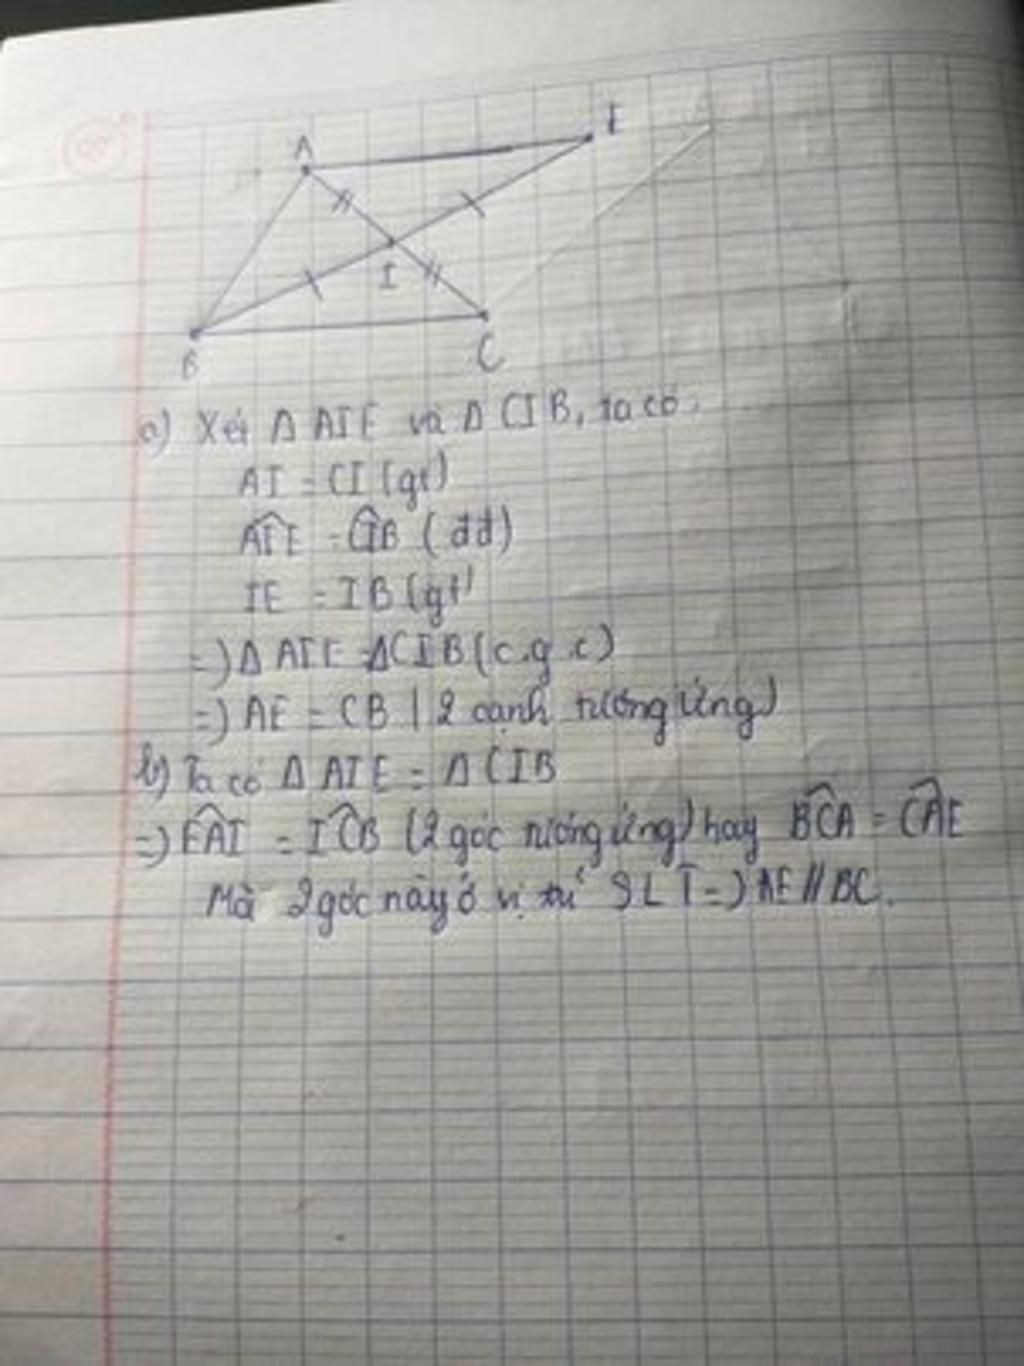 A
E
I
B
C
a) Xét Δ AIE và Δ CIB, ta có:
AI = CI (gt)
AIE = CIB (đđ)
IE = IB (gt)
=) Δ AIE = ΔCIB (c.g.c)
=) AE = CB (2 cạnh tương ứng)
b) Ta có Δ AIE = Δ CIB
=) EAI = ICB (2 góc tương ứng) hay BCA = CAE
Mà 2 góc này ở vị trí SLT =) AE // BC.